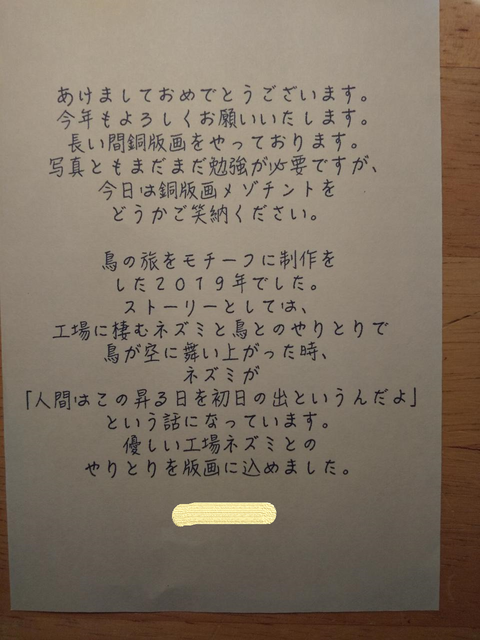 あけましておめでとうございます。
今年もよろしくお願いいたします。
長い間銅版画をやっております。
写真ともまだまだ勉強が必要ですが、
今日は銅版画メゾチントを
どうかご笑納ください。
鳥の旅をモチーフに制作を
した２０１９年でした。
ストーリーとしては、
工場に棲むネズミと鳥とのやりとりで
鳥が空に舞い上がった時、
ネズミが
「人間はこの昇る日を初日の出というんだよ」
という話になっています。
優しい工場ネズミとの
やりとりを版画に込めました。